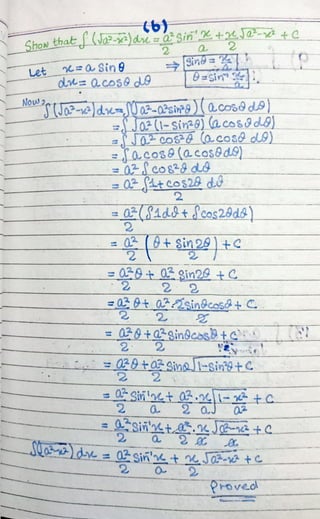 (b)
Show that ∫(√a²-x²)dx = a²/2 Sin⁻¹ x/a + x/2 √a²-x² + C
Let x = a Sinθ ⇒ Sinθ = x/a
dx = a cosθ dθ θ = Sin⁻¹ x/a
Now, ∫(√a²-x²)dx = ∫(√a²-a²sin²θ)(a cosθ dθ)
= ∫√a²(1-Sin²θ) (a cosθ dθ)
= ∫√a² cos²θ (a cosθ dθ)
= ∫a cosθ (a cosθ dθ)
= a² ∫cos²θ dθ
= a² ∫(1+cos2θ)/2 dθ
= a²/2 (∫1dθ + ∫cos2θdθ)
= a²/2 (θ + Sin2θ/2) + C
= a²/2 θ + a²/2 Sin2θ/2 + C
= a²/2 θ + a²/2 · 2Sinθcosθ/2 + C
= a²/2 θ + a²/2 Sinθcosθ + C
= a²/2 θ + a²/2 Sinθ√1-Sin²θ + C
= a²/2 Sin⁻¹ x/a + a²/2 · x/a √1-x²/a² + C
= a²/2 Sin⁻¹ x/a + a²/2 · x/a √a²-x²/a + C
∫(√a²-x²) dx = a²/2 Sin⁻¹ x/a + x/2 √a²-x² + C
Proved